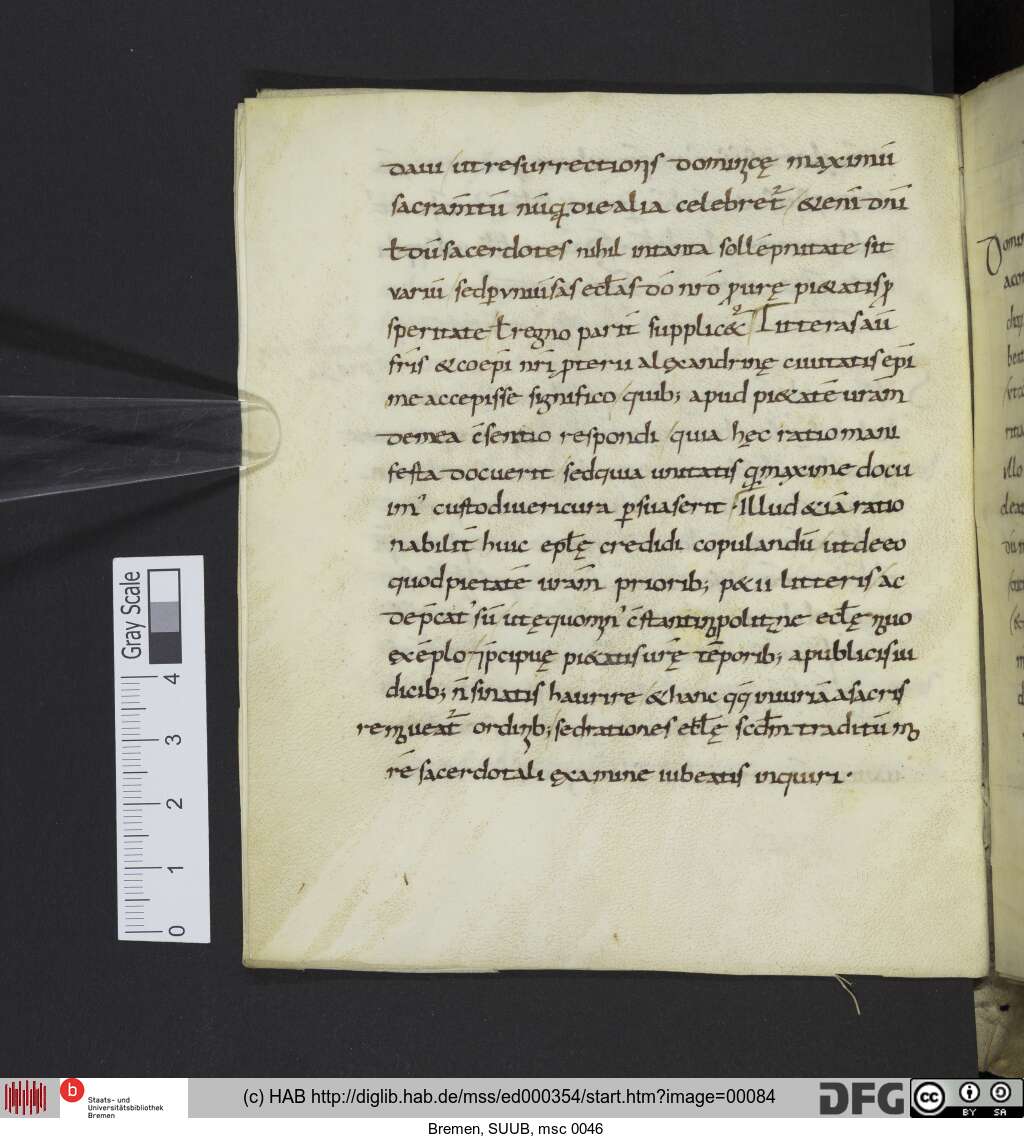 daui ut resurrectionis dominicę maximū
sacramtū nūq die alia celebret & enī dnī
sacerdotes nihil in tanta sollēpnitate sit
variū sed p uniūsas ecłas dō nrō purę pi&atis p
speritate ł regno parit̄ supplic& Litteras aū
fris & coepī nrī pterii alexandrinę ciuitatis epī
me accepisse significo quib; apud pi&atē urām
de mea c̄sentio respondi quia hęc ratio mani
festa docuerit sed quia unitatis q maxime docu
im' custodiueri cura psuaserit Illud & iā ratio
nabilit̄ huic eplę credidi copulandū ut de eo
quod pietatē urām priorib; p&ii litteris ac
dep̄cat' sū ut ęquonm' c̄stantinopolitąne ecłę nouo
exēplo p̄cipuę pi&atis urę tēporib; a publicis iu
dicib; n̄ sinatis haurire & hanc qq iniuriā a sacris
remoueat̄ ordinib; sed rationes ecłę scdm traditū mo
rē sacerdotali examine iubeatis inquiri·
Gray Scale
4
3
2
1
0
b
Staats- und
Universitätsbibliothek
Bremen
(c) HAB http://diglib.hab.de/mss/ed000354/start.htm?image=00084
DFG
cc
BY SA
Bremen, SUUB, msc 0046